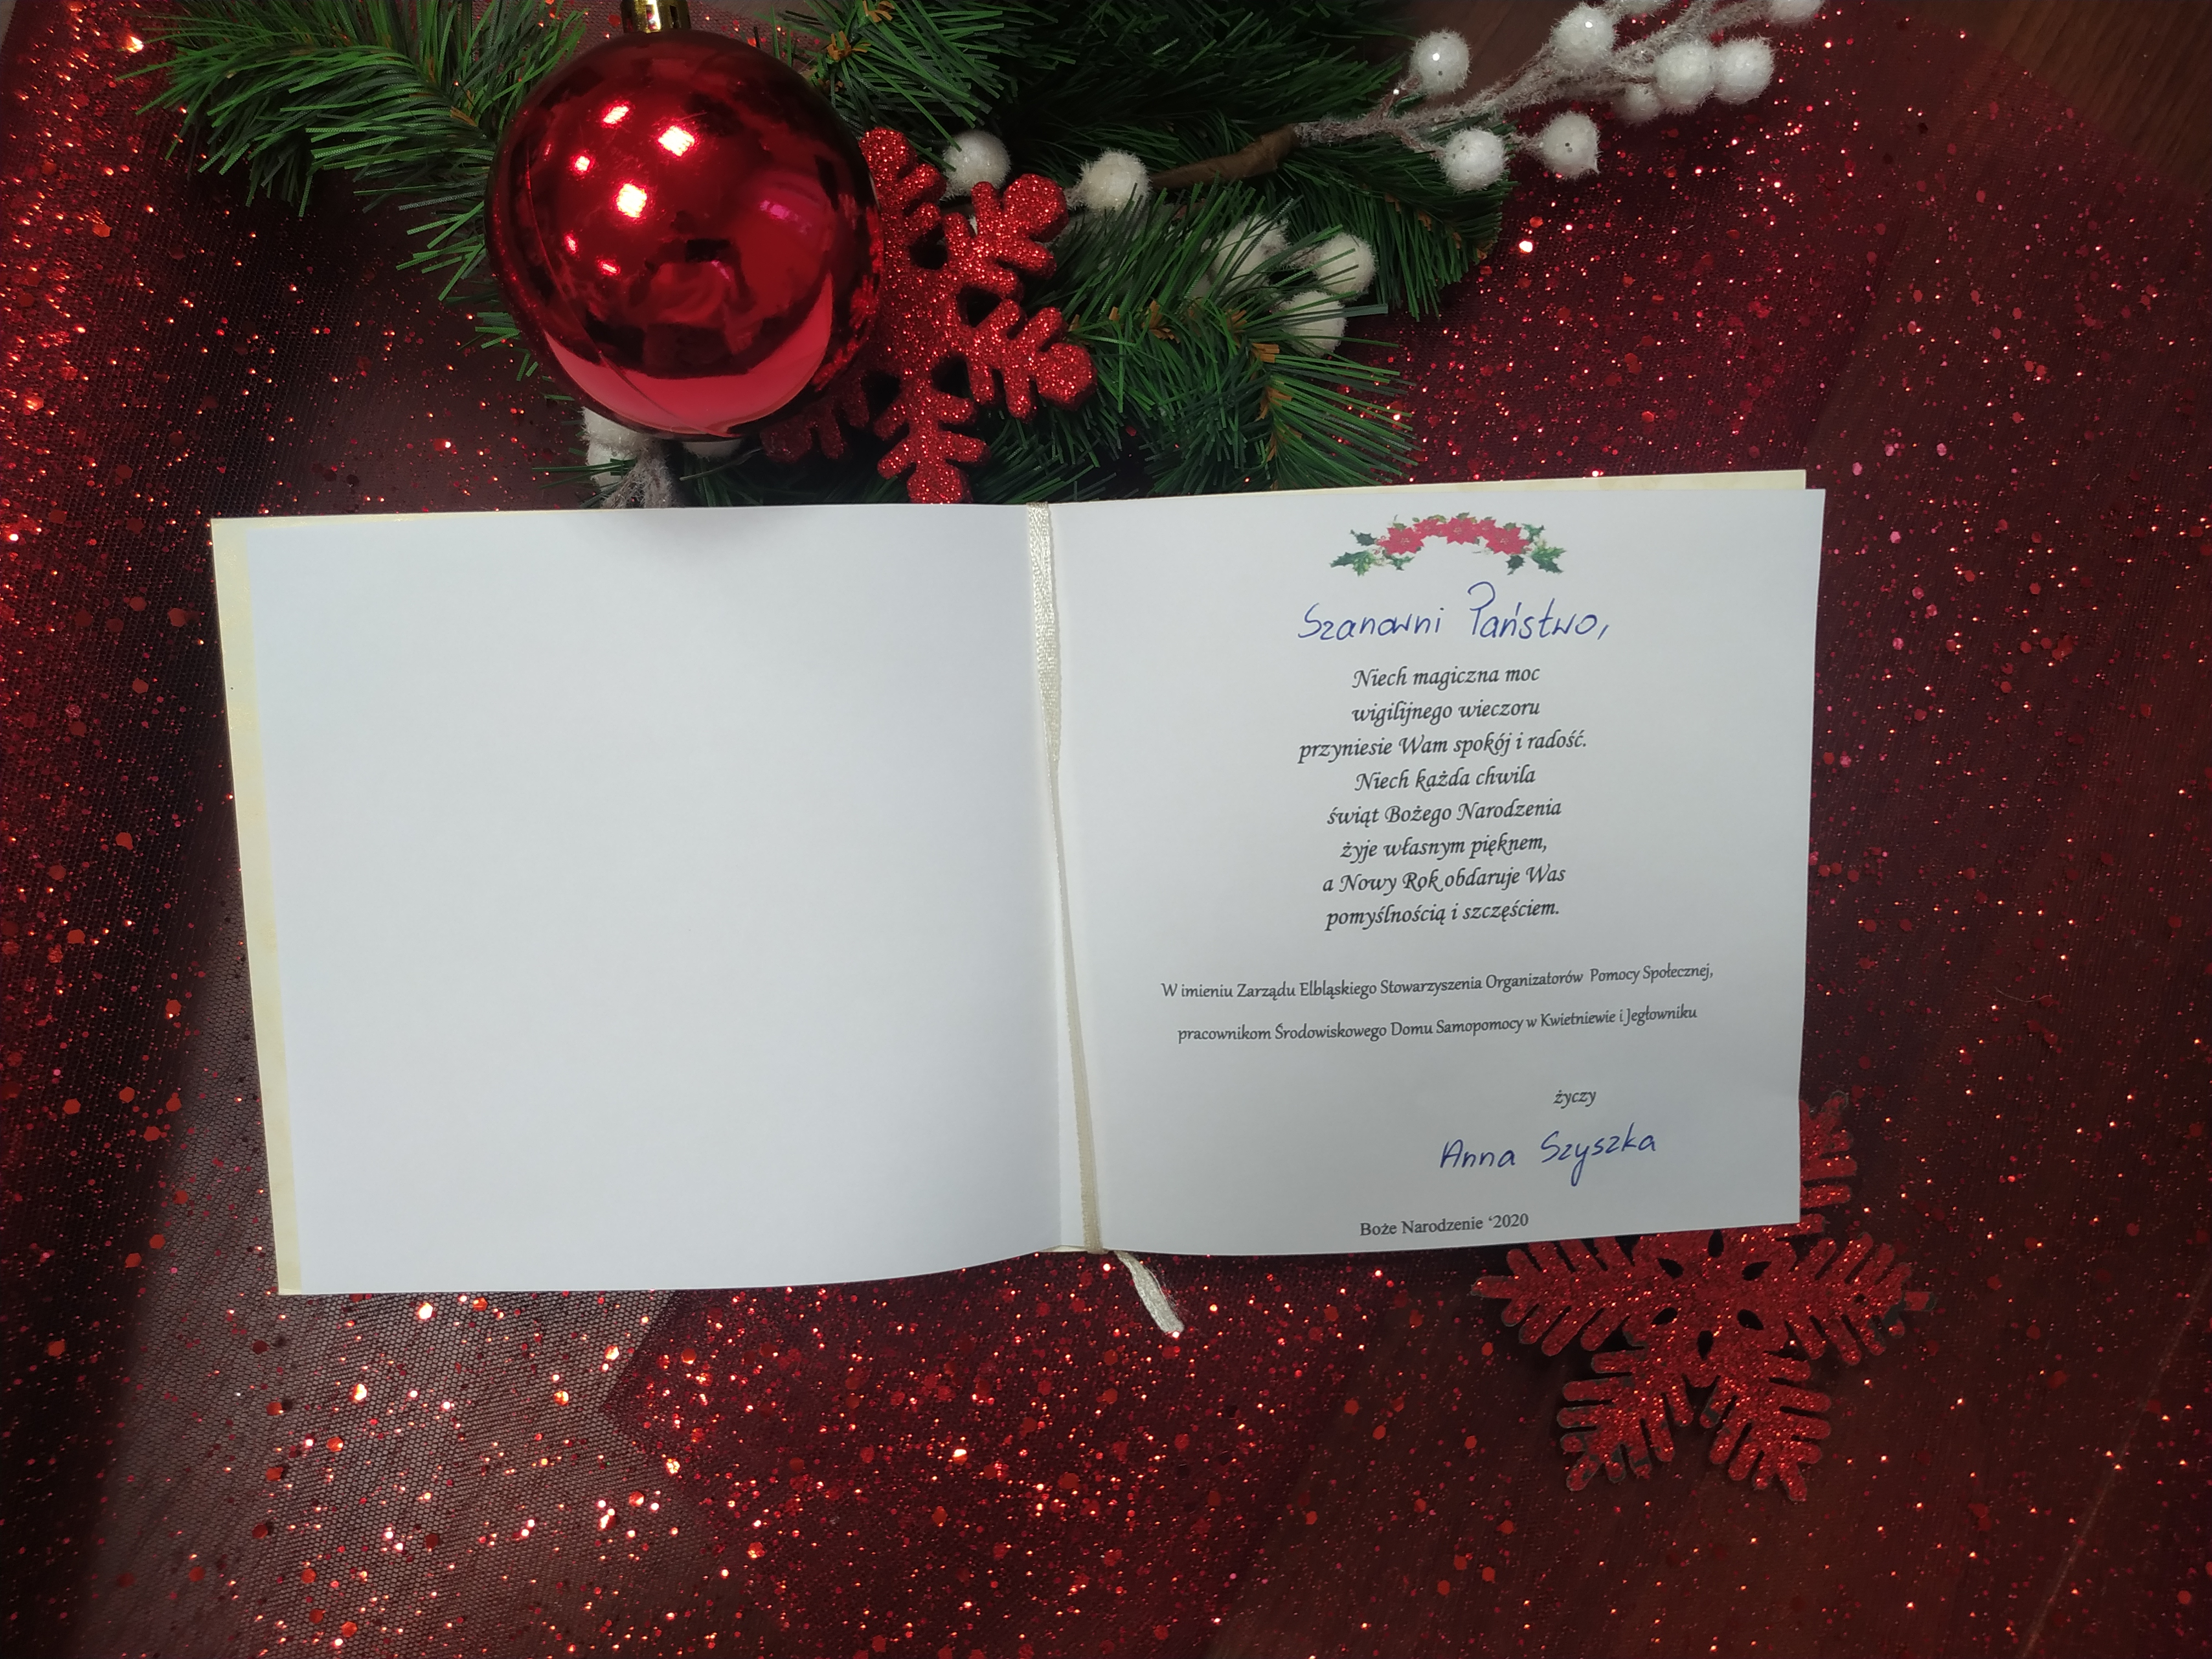 Szanowni Państwo,
Niech magiczna moc
wigilijnego wieczoru
przyniesie Wam spokój i radość.
Niech każda chwila
świąt Bożego Narodzenia
żyje własnym pięknem,
a Nowy Rok obdaruje Was
pomyślnością i szczęściem.
W imieniu Zarządu Elbląskiego Stowarzyszenia Organizatorów Pomocy Społecznej,
pracownikom Środowiskowego Domu Samopomocy w Kwietniewie i Jegłowniku
życzy
Anna Szyszka
Boże Narodzenie ‘2020